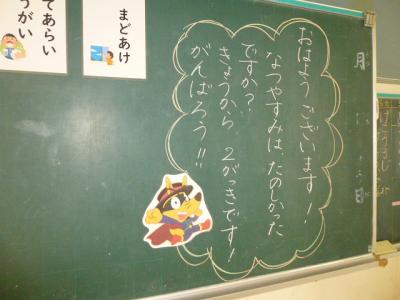 おはようございます！
なつやすみは、たのしかった
ですか？
きょうから、2がっきです！
がんばろう!!
まどあけ
てあらい
うがい
月
日